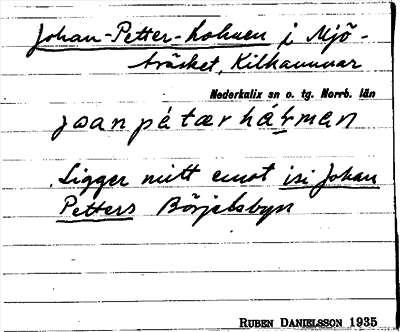 Johan-Petter-holmen i Mjö-
träsket, Kilhammar
Nederkalix sn o. tg. Norrb. län
jɷan pétær hɷ́lman
Ligger mitt emot isi Johan
Petters Börjelsbyn
RUBEN DANIELSSON 1935